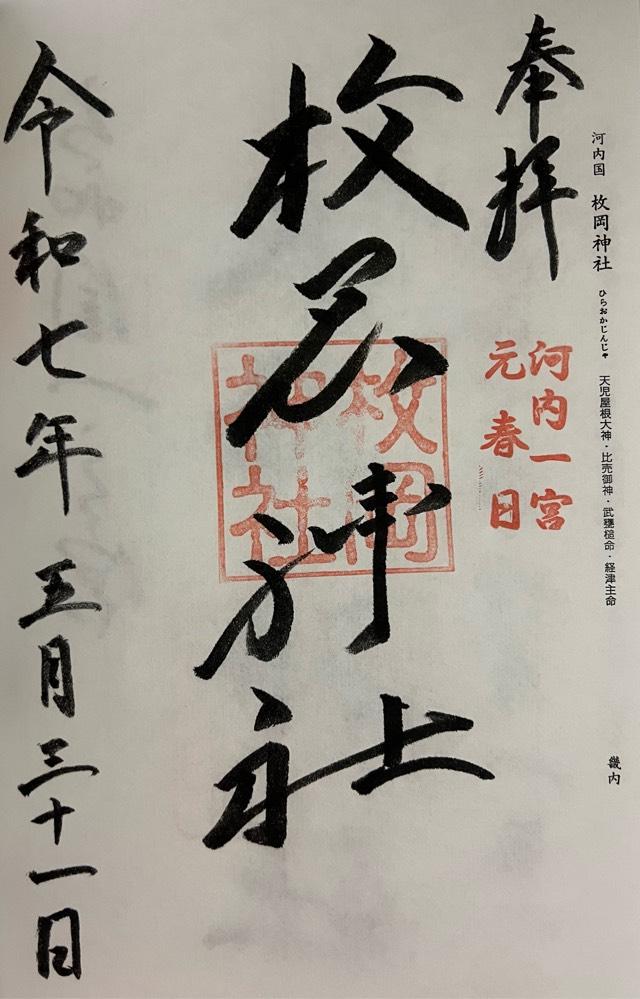 畿内
河内国 枚岡神社 ひらおかじんじゃ 天児屋根大神・比売御神・武甕槌命・経津主命
奉拝
河内一宮
元春日
枚岡神社
枚岡
神社
令和七年五月三十一日